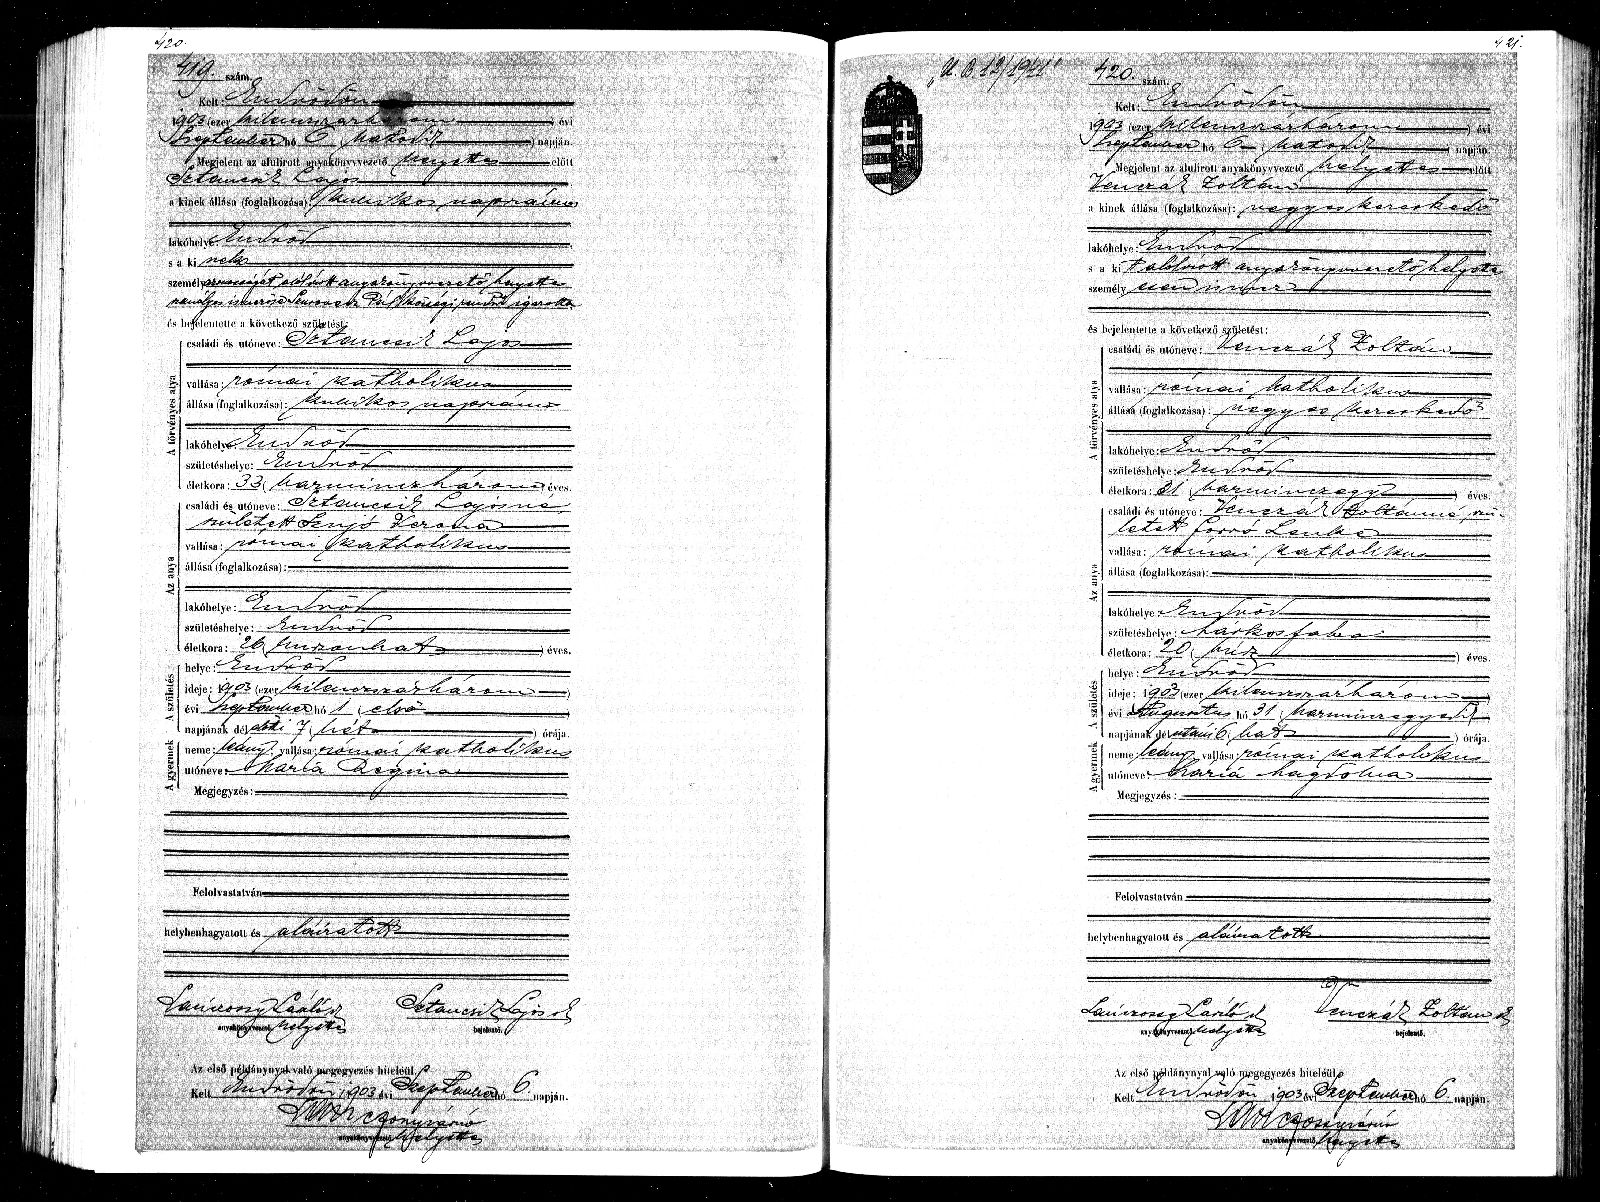 420.
419. szám.
Kelt: Endrődön
1903 (ezer kilenczszázhárom) évi
Szeptember hó 6 hatodik napján.
Megjelent az alulirott anyakönyvvezető helyettes előtt
Sztancsik Lajos
a kinek állása (foglalkozása):
lakóhelye: Endrőd
s a ki nek
személyazonosságát alólirott anyakönyvvezető helyettes
és bejelentette a következő születést:
A törvényes atya
családi és utóneve: Sztancsik Lajos
vallása: római katholikus
állása (foglalkozása):
lakóhelye: Endrőd
születéshelye: Endrőd
életkora: 33 (harminczhárom) éves.
Az anya
családi és utóneve: Sztancsik Lajosné
született Szujó Verona
vallása: római katholikus
állása (foglalkozása):
lakóhelye: Endrőd
születéshelye: Endrőd
életkora: 26 (huszonhat) éves.
A születés
helye: Endrőd
ideje: 1903 (ezer kilenczszázhárom)
évi Szeptember hó 1 (első)
napjának délelőtti 7 (hét) órája.
A gyermek
neme: leány vallása: római katholikus
utóneve: Mária Regina
Megjegyzés:
Felolvastatván
helybenhagyatott és aláiratott
László Sztancsik Lajos
anyakönyvvezető helyettes bejelentő.
Az első példánynyal való megegyezés hiteléül.
Kelt Endrődön 1903 évi Szeptember hó 6 napján.
anyakönyvvezető helyettes
421.
„U. B. 12/1941"
420. szám.
Kelt: Endrődön
1903 (ezer kilenczszázhárom) évi
Szeptember hó 6 hatodik napján.
Megjelent az alulirott anyakönyvvezető helyettes előtt
Venczák Zoltán
a kinek állása (foglalkozása): vegyeskereskedő
lakóhelye: Endrőd
s a ki t alólirott anyakönyvvezető helyettes
személyesen ismer
és bejelentette a következő születést:
A törvényes atya
családi és utóneve: Venczák Zoltán
vallása: római katholikus
állása (foglalkozása): vegyes kereskedő
lakóhelye: Endrőd
születéshelye: Endrőd
életkora: 31 (harminczegy) éves.
Az anya
családi és utóneve: Venczák Zoltánné szü-
letett Forró Lenke
vallása: római katholikus
állása (foglalkozása):
lakóhelye: Endrőd
születéshelye:
életkora: 20 (húsz) éves.
A születés
helye: Endrőd
ideje: 1903 (ezer kilenczszázhárom)
évi Augusztus hó 31 (harminczegyedik)
napjának délutáni 6 (hat) órája.
A gyermek
neme: leány vallása: római katholikus
utóneve: Mária Magdolna
Megjegyzés:
Felolvastatván
helybenhagyatott és aláiratott
László Venczák Zoltán
anyakönyvvezető helyettes bejelentő.
Az első példánynyal való megegyezés hiteléül.
Kelt Endrődön 1903 évi Szeptember hó 6 napján.
anyakönyvvezető helyettes